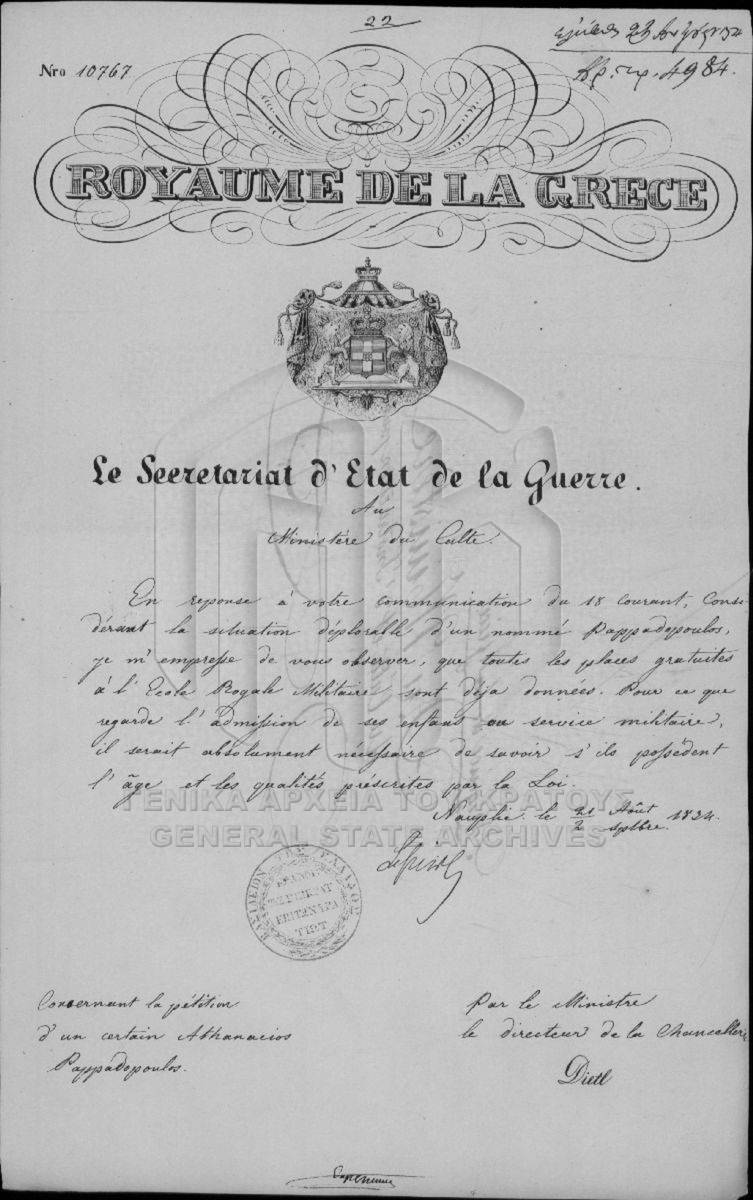 22
23 34
Nro 10767
Αρ. πρ. 4984.
ROYAUME DE LA GRECE
Le Secretariat d'Etat de la Guerre.
Au
Ministère du Culte.
En reponse à votre communication du 18 courant, Consi-
dérant la situation déplorable d'un nommé Pappadopoulos,
je m'empresse de vous observer, que toutes les places gratuites
à l'Ecole Royale Militaire sont déja données. Pour ce que
regarde l'admission de ses enfans au service militaire,
il serait absolument nécessaire de savoir s'ils possèdent
l'âge et les qualités préscrites par la Loi.
ΓΕΝΙΚΑ ΑΡΧΕΙΑ ΤΟΥ ΚΡΑΤΟΥΣ
Nauplie le 21/2 Août/Septbre. 1834.
GENERAL STATE ARCHIVES
ΒΑΣΙΛΕΙΟΝ ΤΗΣ ΕΛΛΑΔΟΣ
Concernant la pétition
d'un certain Athanacios
Pappadopoulos.
Par le Ministre
le directeur de la Chancellerie
Dietl